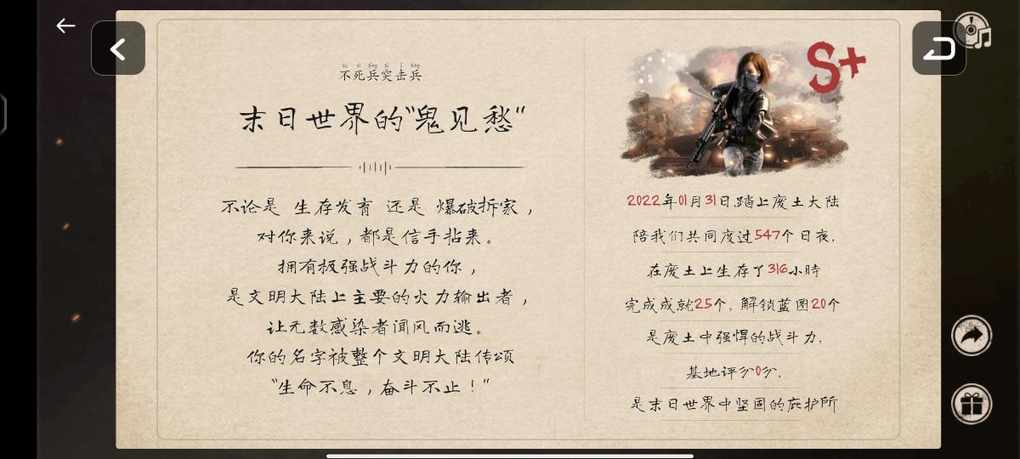 不死兵突击兵
末日世界的“鬼见愁”
不论是 生存发育 还是 爆破拆家，
对你来说，都是信手拈来。
拥有极强战斗力的你，
是文明大陆上主要的火力输出者，
让无数感染者闻风而逃。
你的名字被整个文明大陆传颂
“生命不息，奋斗不止！”
S+
2022年01月31日踏上废土大陆
陪我们共同度过547个日夜.
在废土上生存了316小时
完成成就25个, 解锁蓝图20个
是废土中强悍的战斗力.
基地评分0分.
是末日世界中坚固的庇护所